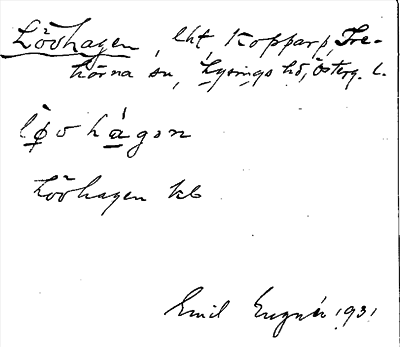 Lövhagen, lht, Kopparp, Tre-
hörna sn, Lysings hd, Österg. l.
lø̀vhágən
Lövhagen kb
Emil Eugnér 1931